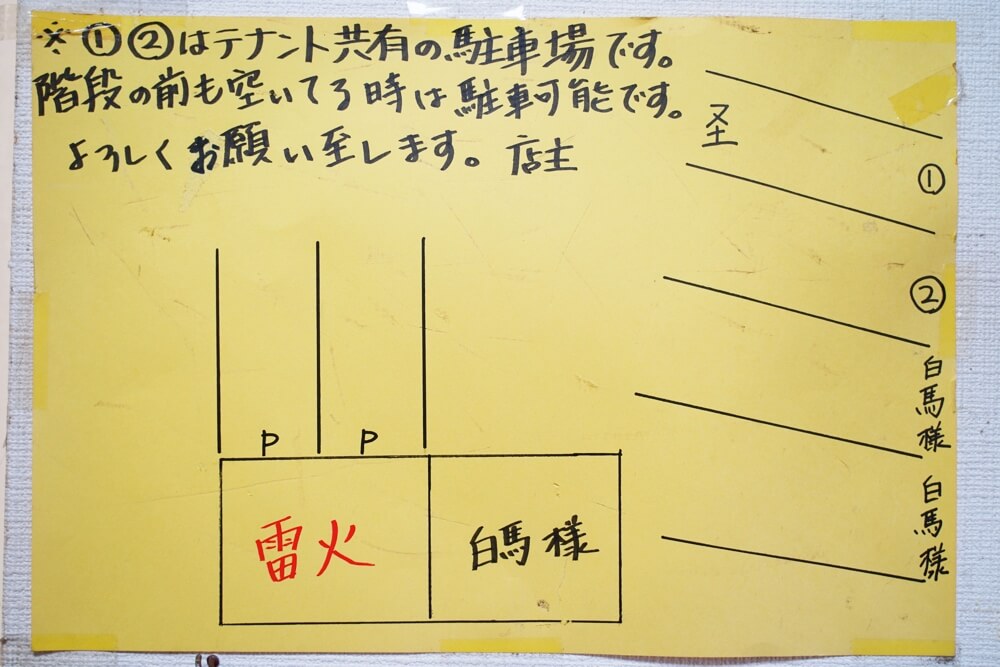 ※①②はテナント共有の駐車場です。
階段の前も空いてる時は駐車可能です。
よろしくお願い至します。店主
圣
①
②
白馬様
白馬様
P P
雷火 白馬様